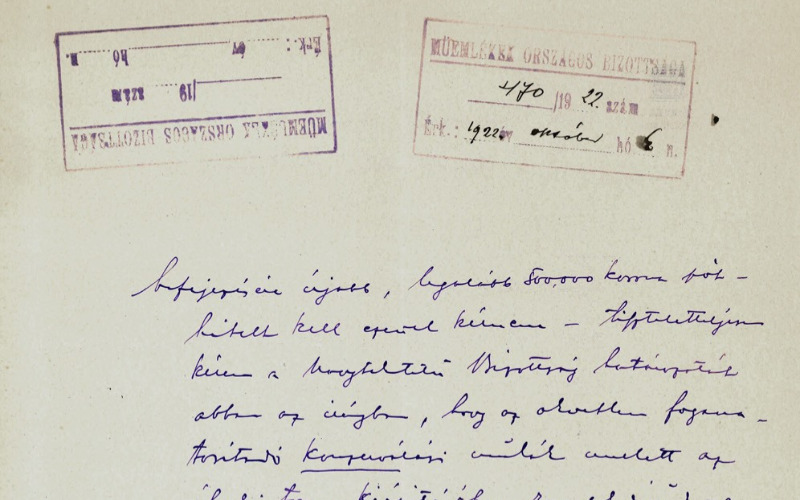 MŰEMLÉKEK ORSZÁGOS BIZOTTSÁGA
/19 szám
Érk.: év hó n.
MŰEMLÉKEK ORSZÁGOS BIZOTTSÁGA
470/1922 szám
Érk.: 1922 év október hó 6 n.
befejezésére újabb, legalább 800,000 korona pót-
hitelt kell ezennel kérnem – tiszteletteljesen
kérem a Nagytekintetű Bizottság határozatát
abban az irányban, hogy az okvetlen fogana-
tosítandó konzerválási munkák mellett az